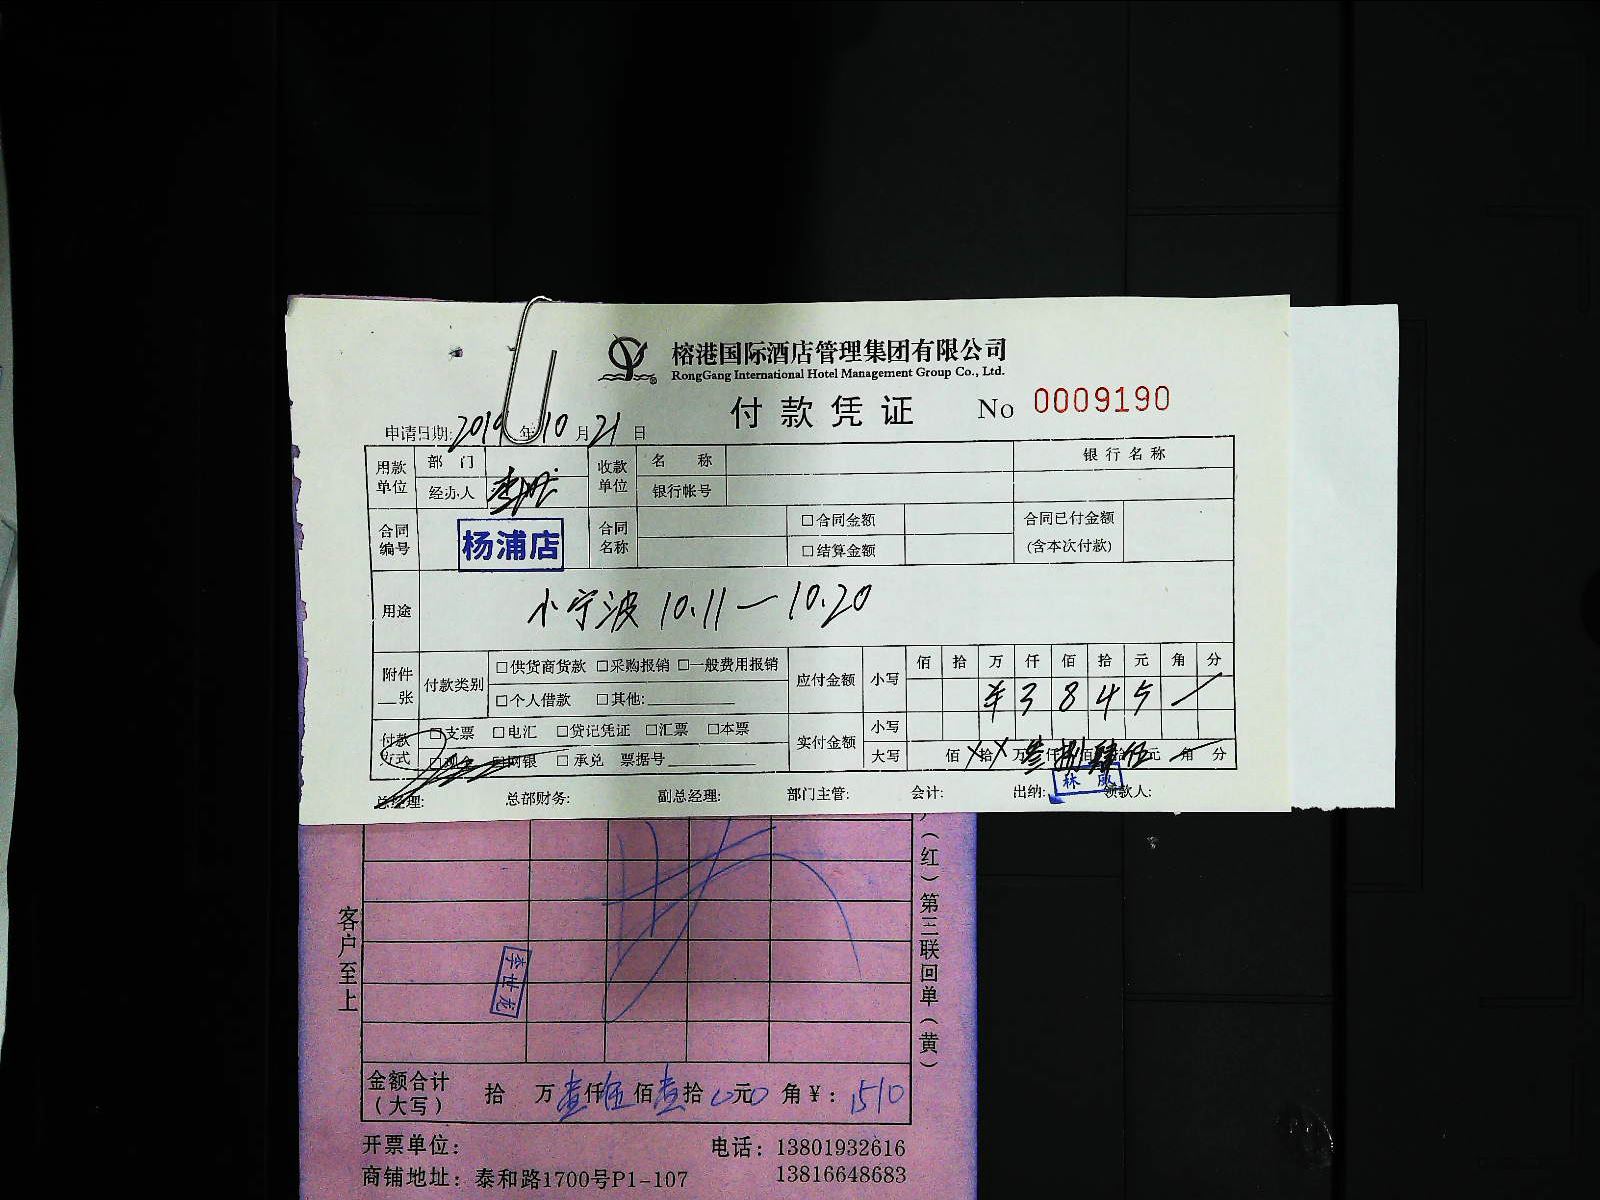 榕港国际酒店管理集团有限公司
RongGang International Hotel Management Group Co., Ltd.
付款凭证 No 0009190
申请日期: 2019 年 10 月 21 日
用款单位 部门 收款单位 名称 银行名称
经办人 银行帐号
合同编号 杨浦店 合同名称 □合同金额 合同已付金额
□结算金额 (含本次付款)
用途 小宁波 10.11—10.20
附件 张 付款类别 □供货商货款 □采购报销 □一般费用报销 应付金额 小写 佰 拾 万 仟 佰 拾 元 角 分
□个人借款 □其他: ¥ 3 8 4 5 —
付款方式 □支票 □电汇 □贷记凭证 □汇票 □本票 实付金额 小写
□现金 □网银 □承兑 票据号 大写 佰 X 拾 X 万 叁 仟 捌 佰 肆 拾 伍 元 角 分
总经理: 总部财务: 副总经理: 部门主管: 会计: 出纳: 领款人:
客户至上
(红) 第三联回单 (黄)
李世龙
金额合计(大写) 拾 万 壹仟 伍佰 壹拾 0元 0角 ¥: 1510
开票单位: 电话: 13801932616
商铺地址: 泰和路1700号P1-107 13816648683